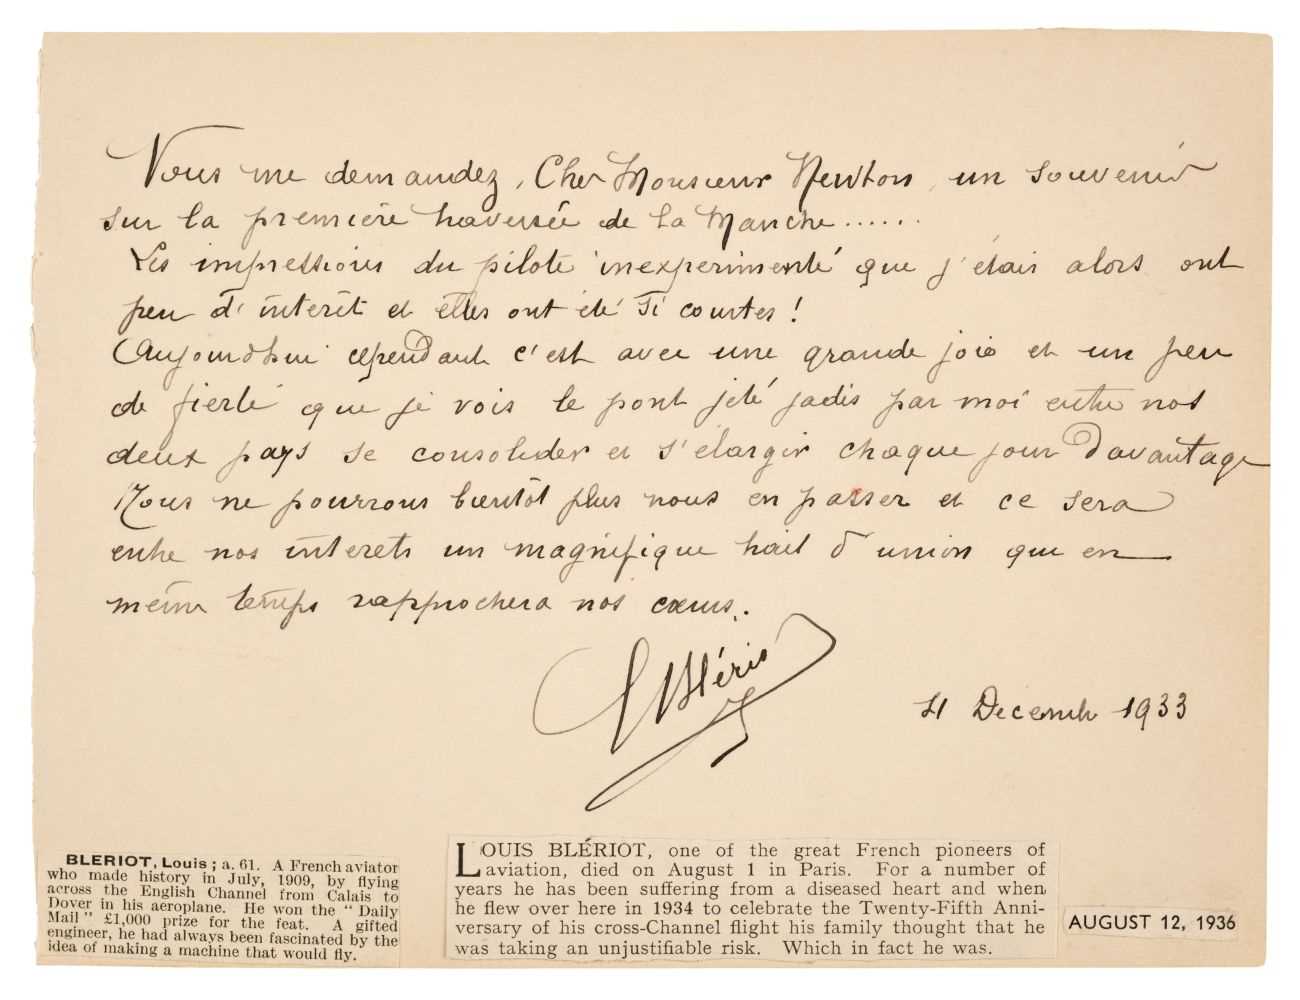 Vous me demandez, Cher Monsieur Newton, un souvenir
sur la première traversée de la Manche......
Les impressions du pilote inexperimenté que j'étais alors ont
peu d'interêt et elles ont été si courtes !
Aujourd'hui cependant c'est avec une grande joie et un peu
de fierté que je vois le pont jeté jadis par moi entre nos
deux pays se consolider et s'élargir chaque jour davantage
Nous ne pourrons bientôt plus nous en passer et ce sera
entre nos interets un magnifique trait d'union qui en
même temps rapprochera nos cœurs.
L Blériot
Decemb 1933
BLERIOT, Louis ; a. 61. A French aviator
who made history in July, 1909, by flying
across the English Channel from Calais to
Dover in his aeroplane. He won the "Daily
Mail" £1,000 prize for the feat. A gifted
engineer, he had always been fascinated by the
idea of making a machine that would fly.
LOUIS BLÉRIOT, one of the great French pioneers of
aviation, died on August 1 in Paris. For a number of
years he has been suffering from a diseased heart and when
he flew over here in 1934 to celebrate the Twenty-Fifth Anni-
versary of his cross-Channel flight his family thought that he
was taking an unjustifiable risk. Which in fact he was.
AUGUST 12, 1936